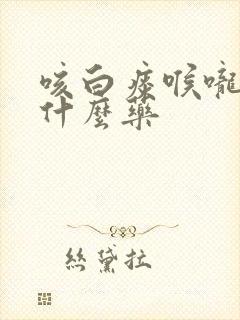 咳白痰喉嚨
什麼藥
絲黛拉